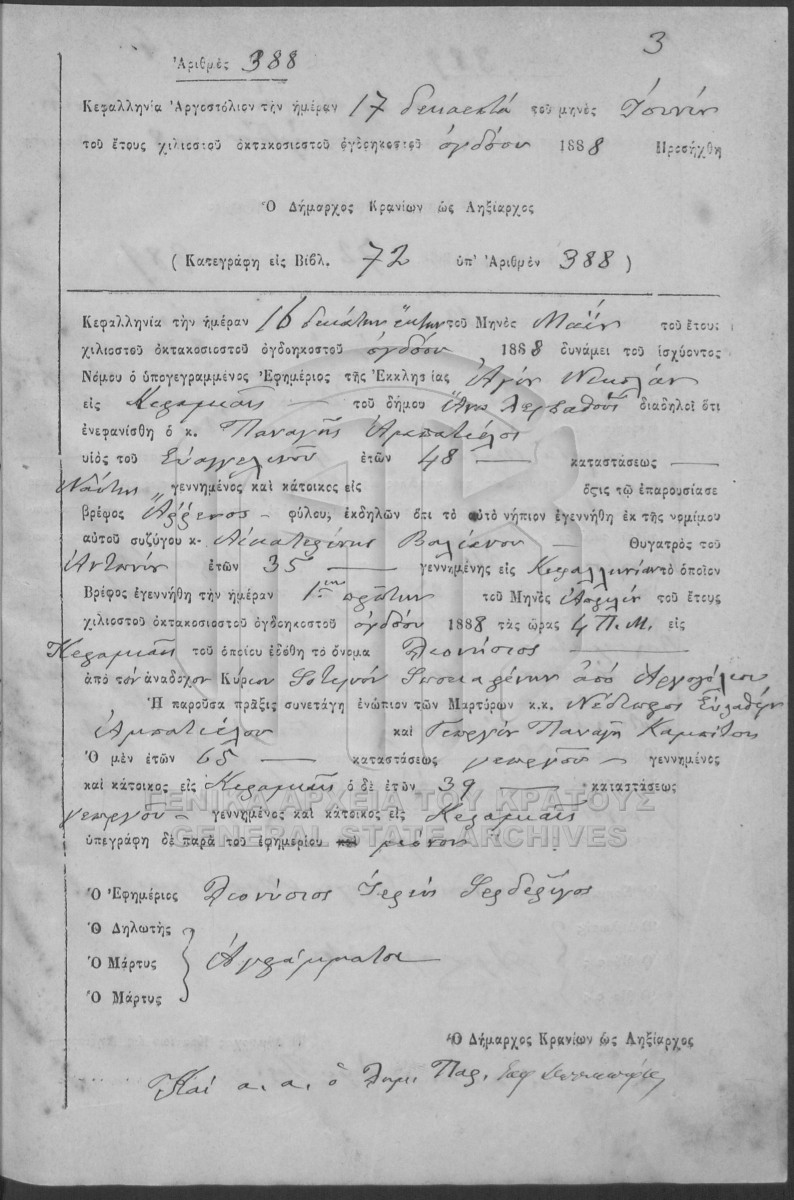 3
Ἀριθμὸς 388
Κεφαλληνία Ἀργοστόλιον τὴν ἡμέραν 17 δεκαεπτά τοῦ μηνὸς Ἰουνίου
τοῦ ἔτους χιλιοστοῦ ὀκτακοσιοστοῦ ὀγδοηκοστοῦ ὀγδόου 1888 Προσήχθη
Ὁ Δήμαρχος Κρανίων ὡς Ληξίαρχος
( Κατεγράφη εἰς Βιβλ. 72 ὑπ' Ἀριθμὸν 388 )
Κεφαλληνία τὴν ἡμέραν 16 δεκάτην ἕκτην τοῦ Μηνὸς Μαΐου τοῦ ἔτους
χιλιοστοῦ ὀκτακοσιοστοῦ ὀγδοηκοστοῦ ὀγδόου 1888 δυνάμει τοῦ ἰσχύοντος
Νόμου ὁ ὑπογεγραμμένος Ἐφημέριος τῆς Ἐκκλησίας Ἁγίου Νικολάου
εἰς τοῦ δήμου διαδηλοῖ ὅτι
ἐνεφανίσθη ὁ κ. Παναγῆς Ἀμπατιέλος
υἱὸς τοῦ Εὐαγγελινοῦ ἐτῶν 48 καταστάσεως
Ναύτης γεννημένος καὶ κάτοικος εἰς ὅςτις τῷ ἐπαρουσίασε
βρέφος Ἄρρενος φύλου, ἐκδηλῶν ὅτι τὸ αὐτὸ νήπιον ἐγεννήθη ἐκ τῆς νομίμου
αὐτοῦ συζύγου κ. Αἰκατερίνης Βαλιάνου Θυγατρὸς τοῦ
Ἀντωνίου ἐτῶν 35 γεννημένης εἰς Κεφαλληνίαν τὸ ὁποῖον
Βρέφος ἐγεννήθη τὴν ἡμέραν 1ην πρώτην τοῦ Μηνὸς Ἀπριλίου τοῦ ἔτους
χιλιοστοῦ ὀκτακοσιοστοῦ ὀγδοηκοστοῦ ὀγδόου 1888 τὰς ὥρας 4 Π.Μ. εἰς
τοῦ ὁποίου ἐδόθη τὸ ὄνομα Διονύσιος
ἀπὸ τὸν ἀνάδοχον Κύριον ἀπό Ἀργοστόλιον
Ἡ παροῦσα πρᾶξις συνετάγη ἐνώπιον τῶν Μαρτύρων κ.κ.
Ἀμπατιέλου καὶ Γεωργίου Παναγῆ
Ὁ μὲν ἐτῶν 65 καταστάσεως γεωργοῦ γεννημένος
καὶ κάτοικος εἰς ὁ δὲ ἐτῶν 39 καταστάσεως
γεωργοῦ γεννημένος καὶ κάτοικος εἰς
ὑπεγράφη δὲ παρὰ τοῦ ἐφημερίου μόνου
ΓΕΝΙΚΑ ΑΡΧΕΙΑ ΤΟΥ ΚΡΑΤΟΥΣ
GENERAL STATE ARCHIVES
Ὁ Ἐφημέριος Διονύσιος Ἱερεύς
Ὁ Δηλωτὴς
Ὁ Μάρτυς Ἀγράμματοι
Ὁ Μάρτυς
Ὁ Δήμαρχος Κρανίων ὡς Ληξίαρχος
Καί α. α. ὁ Δημ. Παρ.